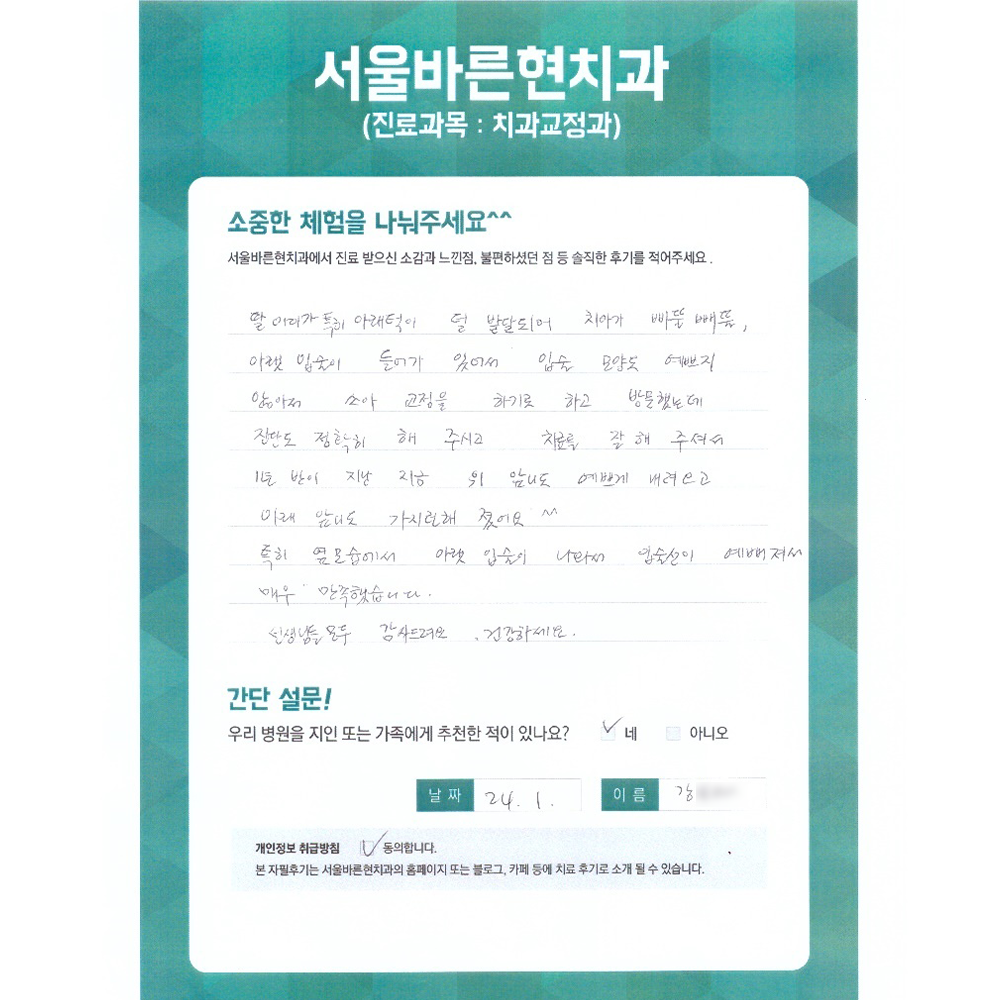 서울바른현치과
(진료과목 : 치과교정과)
소중한 체험을 나눠주세요^^
서울바른현치과에서 진료 받으신 소감과 느낀점, 불편하셨던 점 등 솔직한 후기를 적어주세요.
딸 아이가 특히 아래턱이 덜 발달되어 치아가 삐뚤 빼뚤,
아랫 입술이 들어가 있어서 입술 모양도 예쁘지
않아서 소아 교정을 하기로 하고 방문했는데
진단도 정확히 해 주시고 치료를 잘 해 주셔서
1년 반이 지난 지금 위 앞니도 예쁘게 내려오고
아래 앞니도 가지런해 졌어요^^
특히 옆모습에서 아랫 입술이 나와서 입술선이 예뻐져서
매우 만족했습니다.
선생님들 모두 감사드려요, 건강하세요.
간단 설문!
우리 병원을 지인 또는 가족에게 추천한 적이 있나요? 네 아니오
날 짜 24. 1. 이 름 강
개인정보 취급방침 동의합니다.
본 자필후기는 서울바른현치과의 홈페이지 또는 블로그, 카페 등에 치료 후기로 소개 될 수 있습니다.